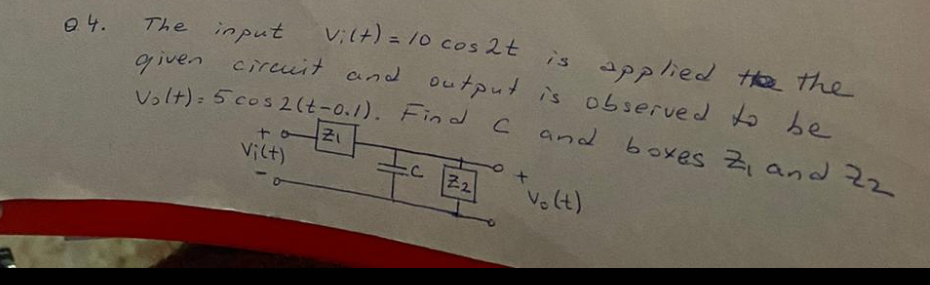 Q4. The input Vi(t) = 10 cos 2t is applied the the
given circuit and output is observed to be
Vo(t) = 5 cos 2(t-0.1). Find C and boxes Z1 and Z2
+ Z1
Vi(t) C Z2 +
- Vo(t)